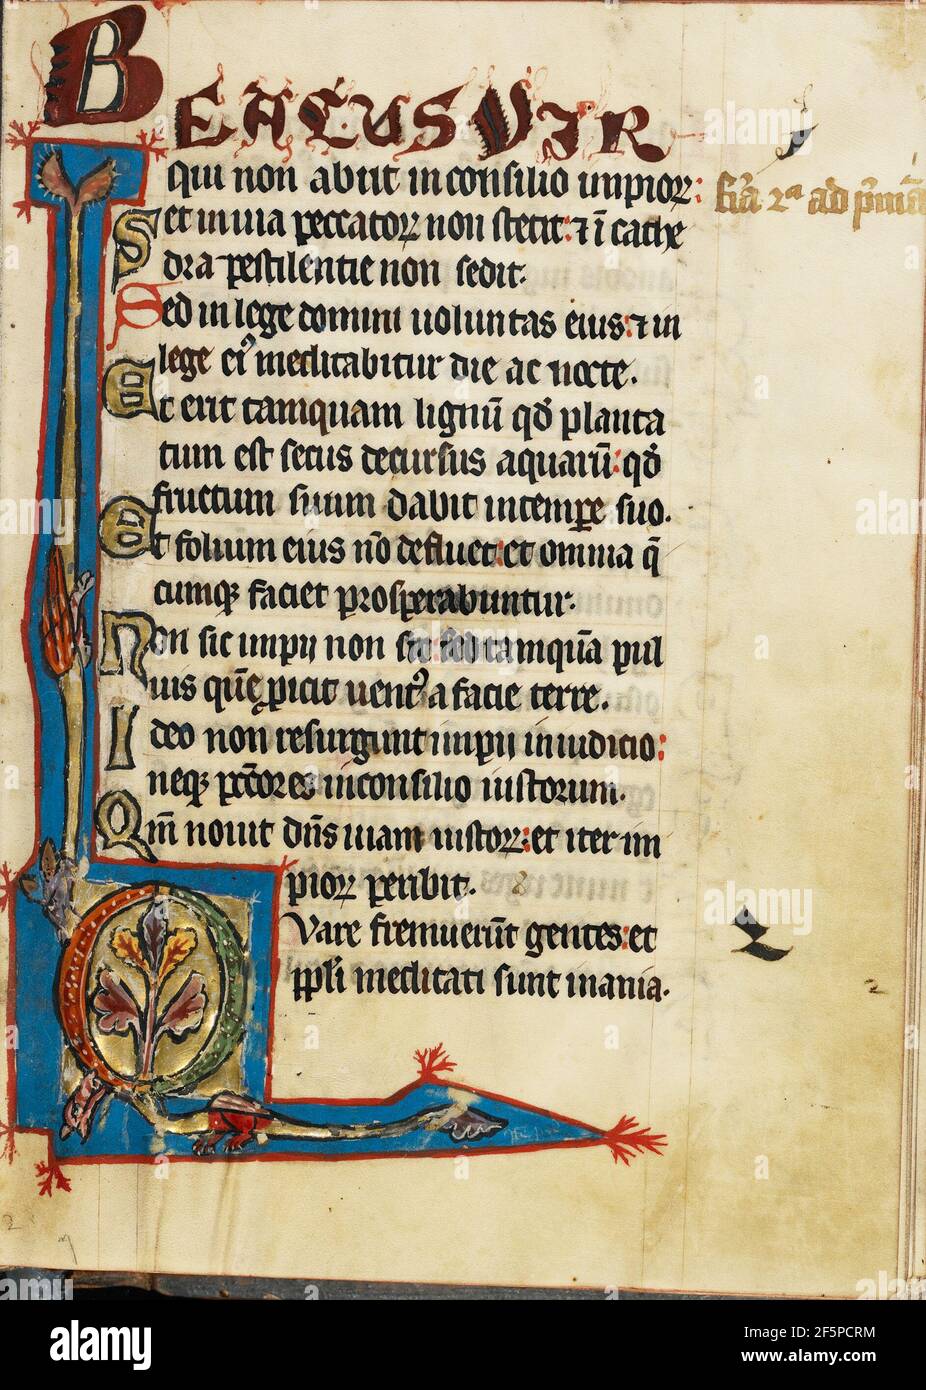 BEATUS VIR
qui non abiit in consilio impioꝝ:
et in via peccatoꝝ non stetit: ⁊ ī cathe
dra pestilentie non sedit.
Sed in lege domini uoluntas eius: ⁊ in
lege eiꝰ meditabitur die ac nocte.
Et erit tamquam lignū qd̓ planta
tum est secus decursus aquarū: qd̓
fructum suum dabit in temꝑe suo.
Et folium eius nō defluet: et omnia q̄
cumqꝫ faciet prosperabuntur.
Non sic impij non sic: sed tamquā pul
uis quē ꝓicit uentꝰ a facie terre.
Ideo non resurgunt impij in iudicio:
neqꝫ pctōres in consilio iustorum.
Qm̄ nouit dn̄s uiam iustoꝝ: et iter im
pioꝝ peribit.
Quare fremuerūt gentes: et
ppl̓i meditati sunt inania.
f̄ia 2ᵃ ad p̄mā
2
alamy
alamy
Image ID: 2F5PCRM
www.alamy.com